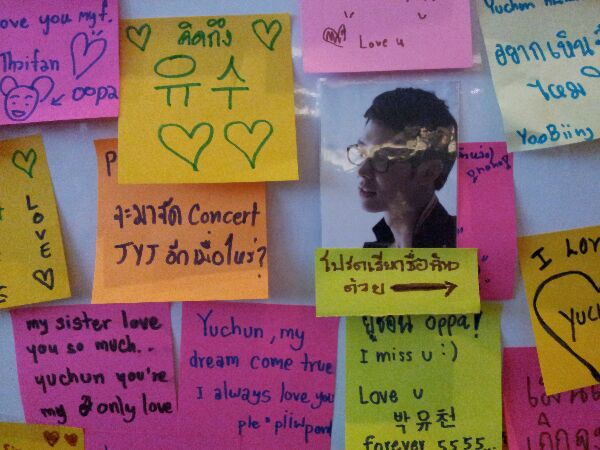 Love you my f.
Thaifan
oppa
คิดถึง
유수
Love u
Yuchun
อยากเห็น
ไหม
YooBiing
LOVE
จะมาจัด Concert
JYJ อีกเมื่อไหร่?
โปรดเรียกชื่อฉัน
ด้วย
I LO
Yuchu
my sister love
you so much..
yuchun you're
my only love
Yuchun, my
dream come true
I always love you
ple*pliwpond
ยูชอน oppa!
I miss u :)
Love u
박유천
forever 5555...